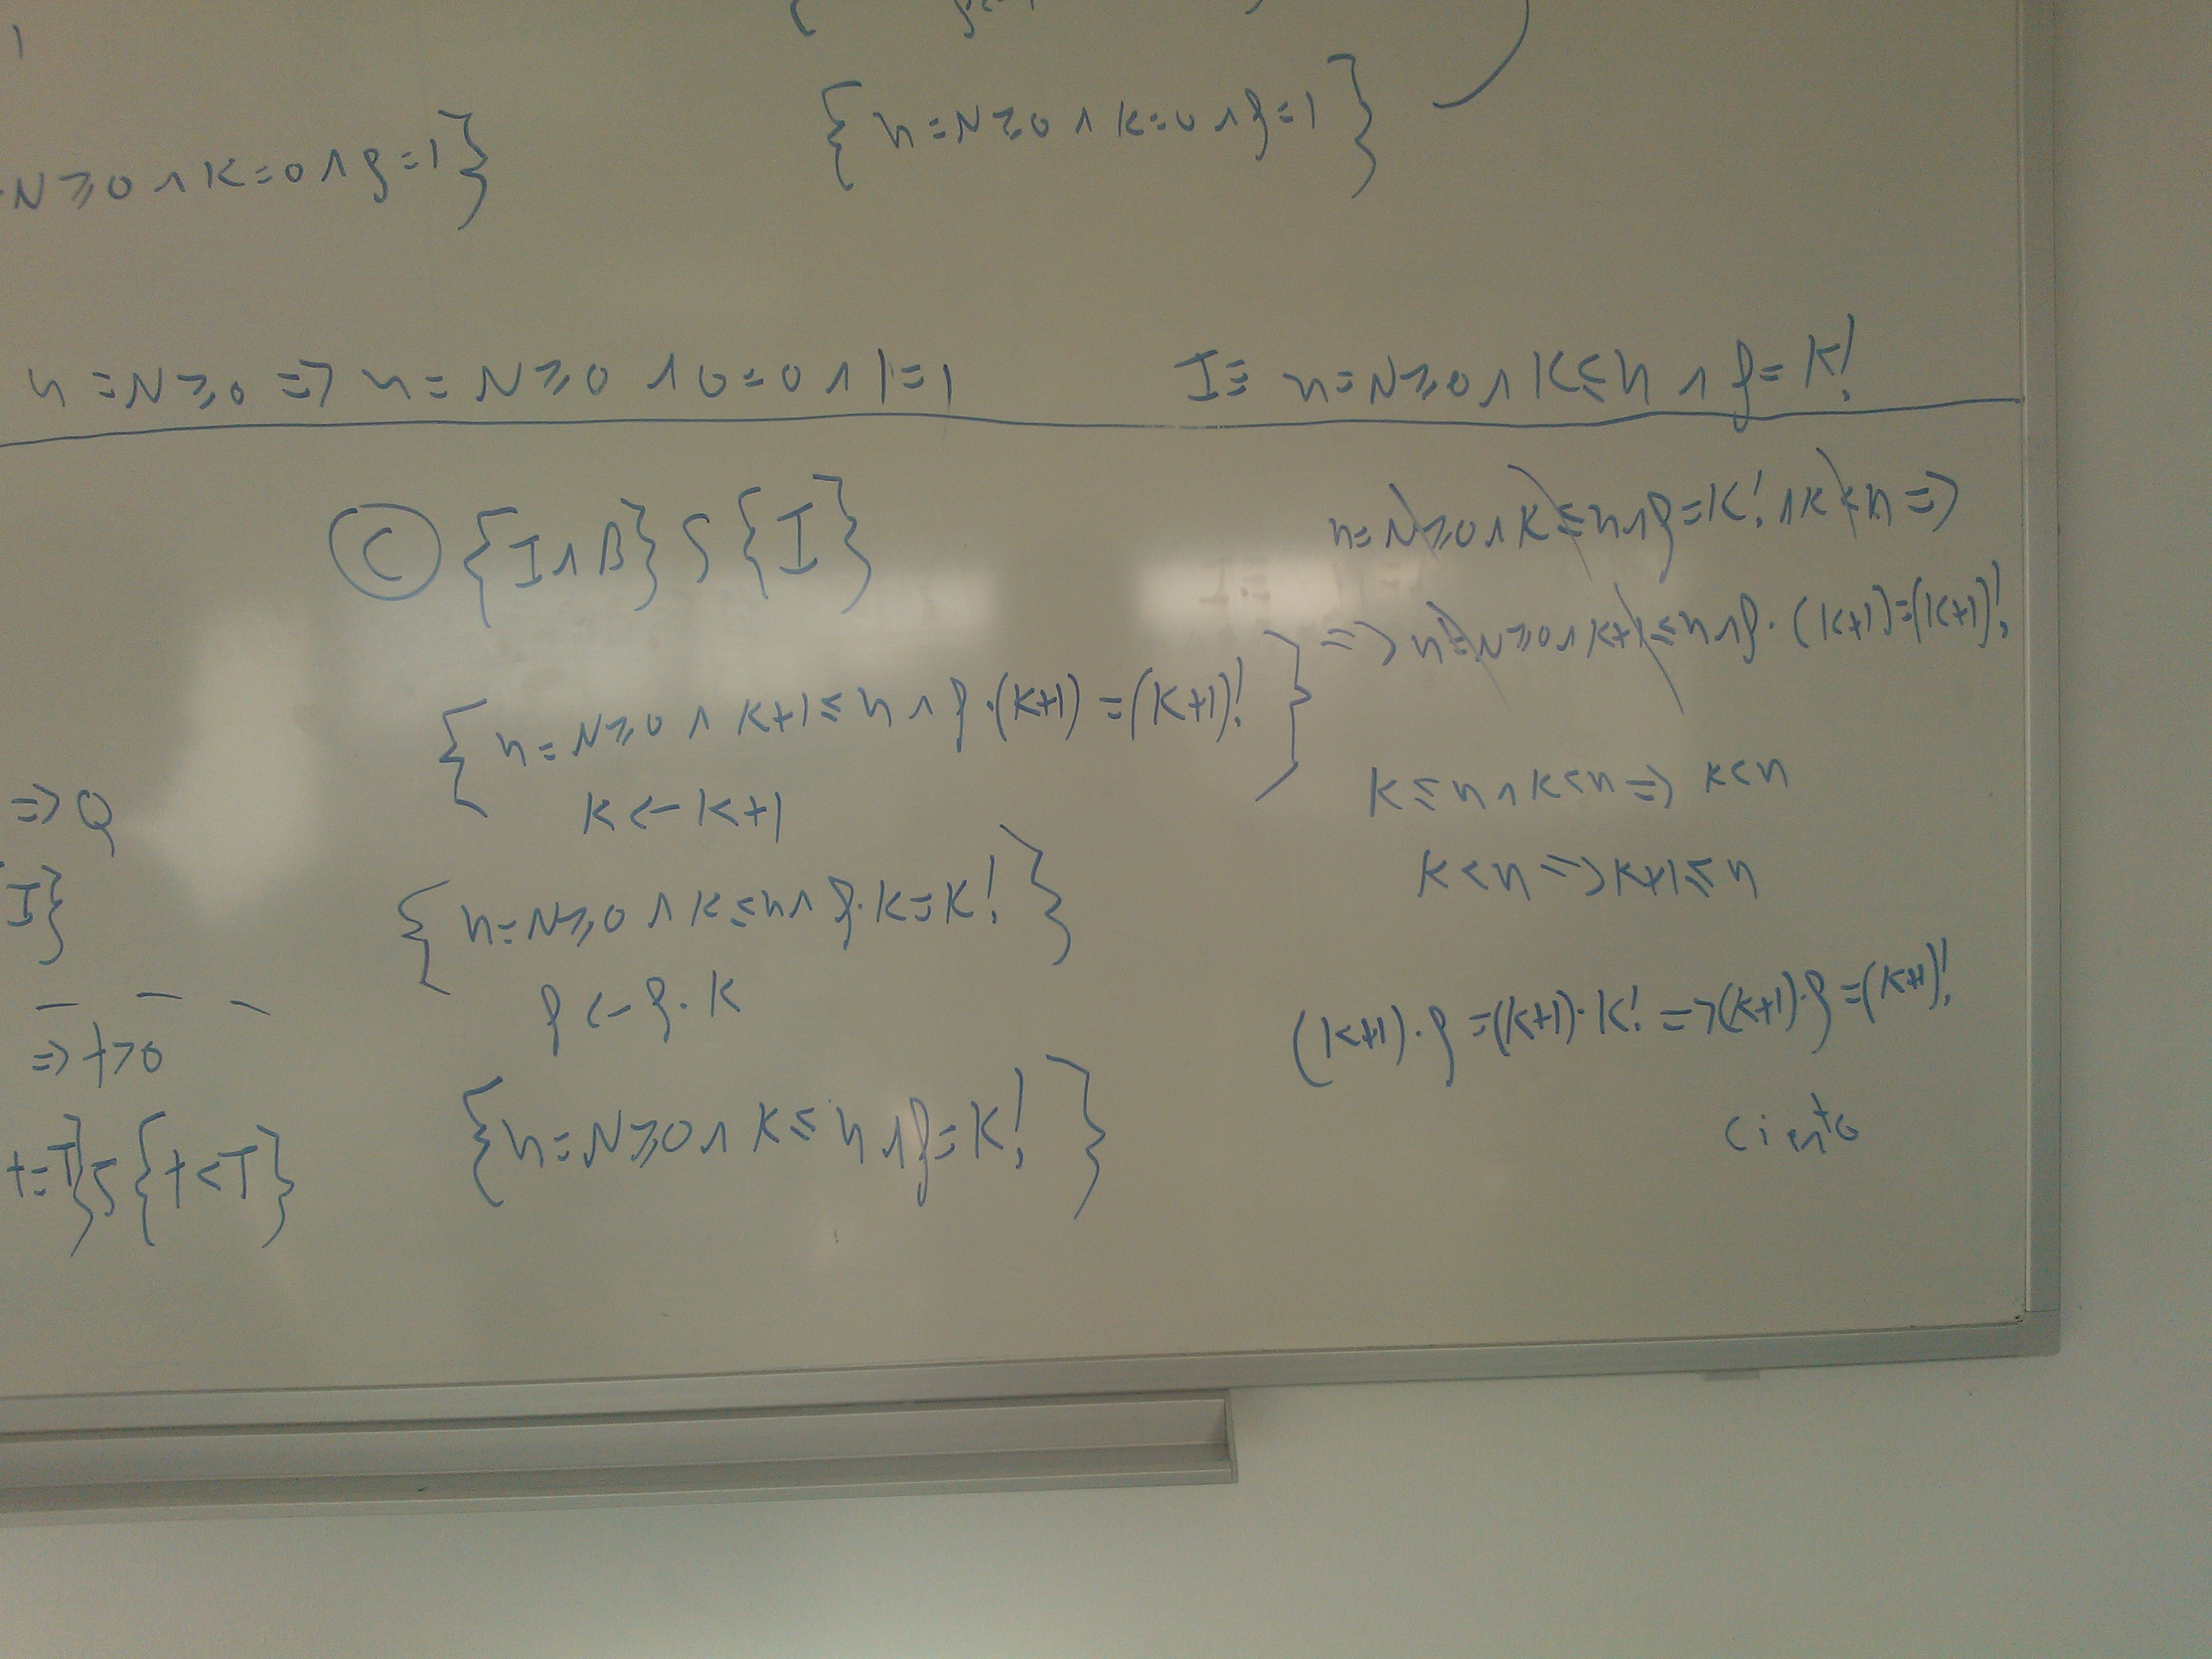 {n=N≥0 ∧ k=0 ∧ f=1}
N≥0 ∧ k=0 ∧ f=1}
n=N≥0 ⇒ n=N≥0 ∧ 0=0 ∧ 1=1
I≡ n=N≥0 ∧ k≤n ∧ f=k!
⇒ Q
I}
⇒ t>0
t=T} S {t<T}
Ⓒ {I∧B} S {I}
{n=N≥0 ∧ k+1≤n ∧ f·(k+1)=(k+1)!}
k←k+1
{n=N≥0 ∧ k≤n ∧ f·k=k!}
f←f·k
{n=N≥0 ∧ k≤n ∧ f=k!}
n=N≥0 ∧ k≤n ∧ f=k! ∧ k<n ⇒
⇒ n=N≥0 ∧ k+1≤n ∧ f·(k+1)=(k+1)!
k≤n ∧ k<n ⇒ k<n
k<n ⇒ k+1≤n
(k+1)·f=(k+1)·k! ⇒ (k+1)·f=(k+1)!
cierto